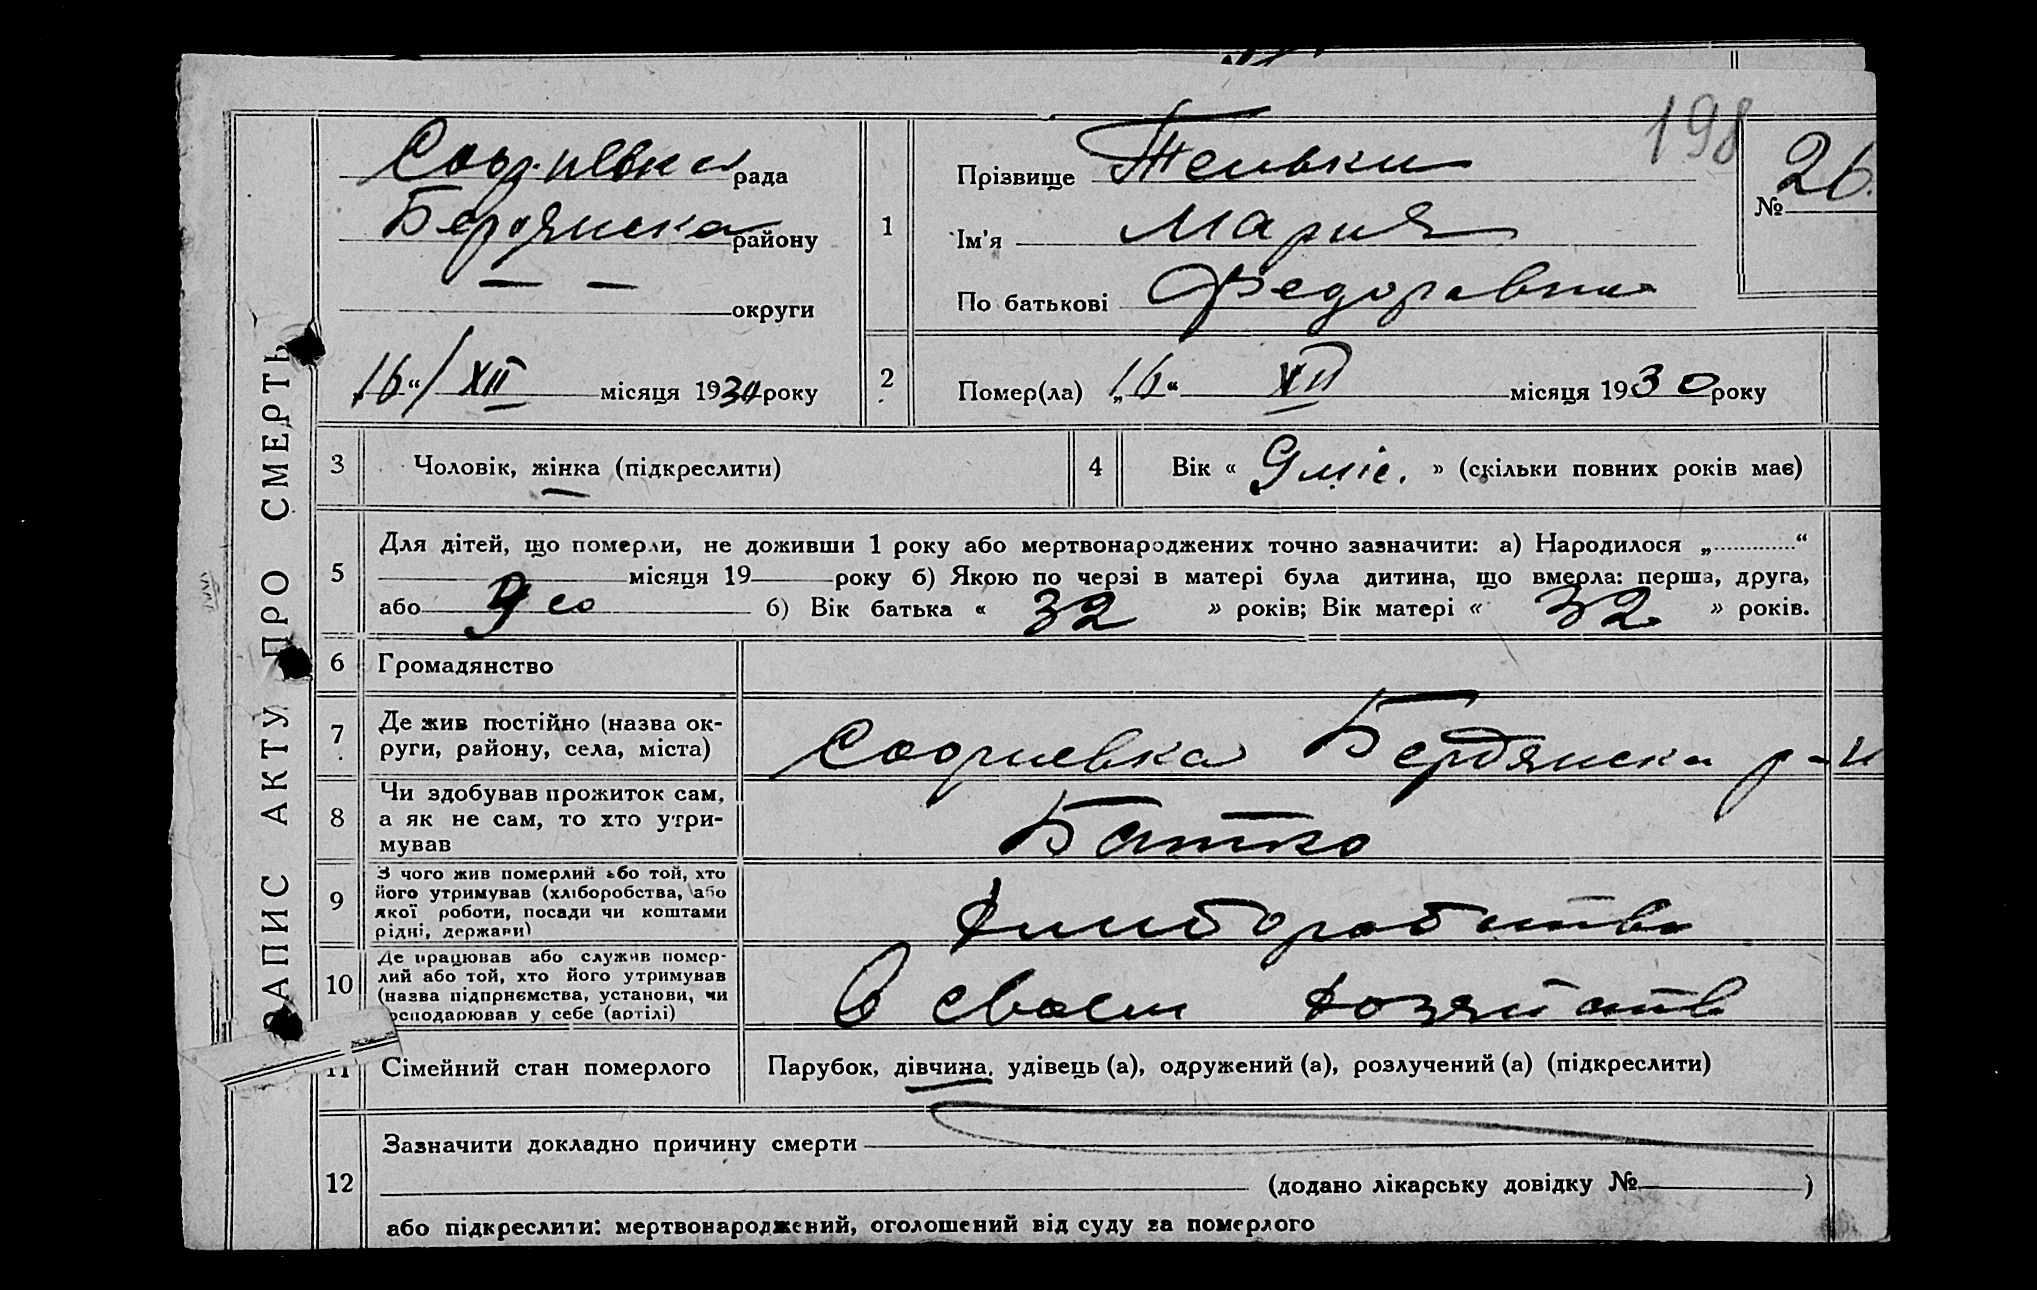 198
№ 26.
ЗАПИС АКТУ ПРО СМЕРТЬ
рада
Бердянска району
— — округи
„16“/XII місяця 1930 року
1
Прізвище Тенъки
Ім'я Мария
По батькові Федоравна
2 Помер(ла) „16“ XII місяця 1930 року
3 Чоловік, жінка (підкреслити)
4 Вік « 9 міс. » (скільки повних років має)
5 Для дітей, що померли, не доживши 1 року або мертвонароджених точно зазначити: а) Народилося „ “
місяця 19 року б) Якою по черзі в матері була дитина, що вмерла: перша, друга,
або б) Вік батька « 32 » років; Вік матері « 32 » років.
6 Громадянство
7 Де жив постійно (назва ок-
руги, району, села, міста)
Бердянска р-н
8 Чи здобував прожиток сам,
а як не сам, то хто утри-
мував
Батко
9 З чого жив померлий або той, хто
його утримував (хліборобства, або
якої роботи, посади чи коштами
рідні, держави)
10 Де працював або служив помер-
лий або той, хто його утримував
(назва підприємства, установи, чи
господарював у себе (артілі)
В своем хозяйстве
11 Сімейний стан померлого
Парубок, дівчина, удівець (а), одружений (а), розлучений (а) (підкреслити)
12 Зазначити докладно причину смерти
(додано лікарську довідку № )
або підкреслити: мертвонароджений, оголошений від суду за померлого